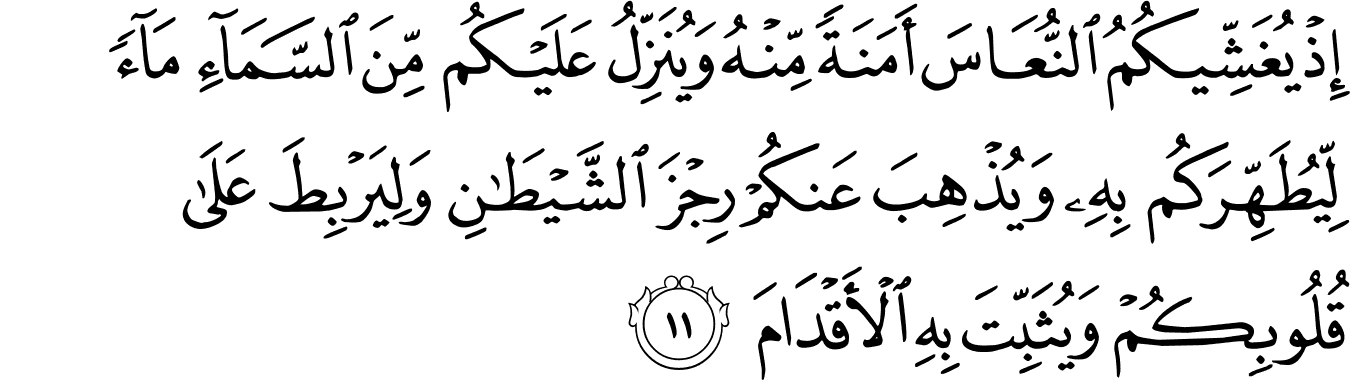 إِذْ يُغَشِّيكُمُ ٱلنُّعَاسَ أَمَنَةً مِّنْهُ وَيُنَزِّلُ عَلَيْكُم مِّنَ ٱلسَّمَآءِ مَآءً
لِّيُطَهِّرَكُم بِهِۦ وَيُذْهِبَ عَنكُمْ رِجْزَ ٱلشَّيْطَٰنِ وَلِيَرْبِطَ عَلَىٰ
قُلُوبِكُمْ وَيُثَبِّتَ بِهِ ٱلْأَقْدَامَ ١١